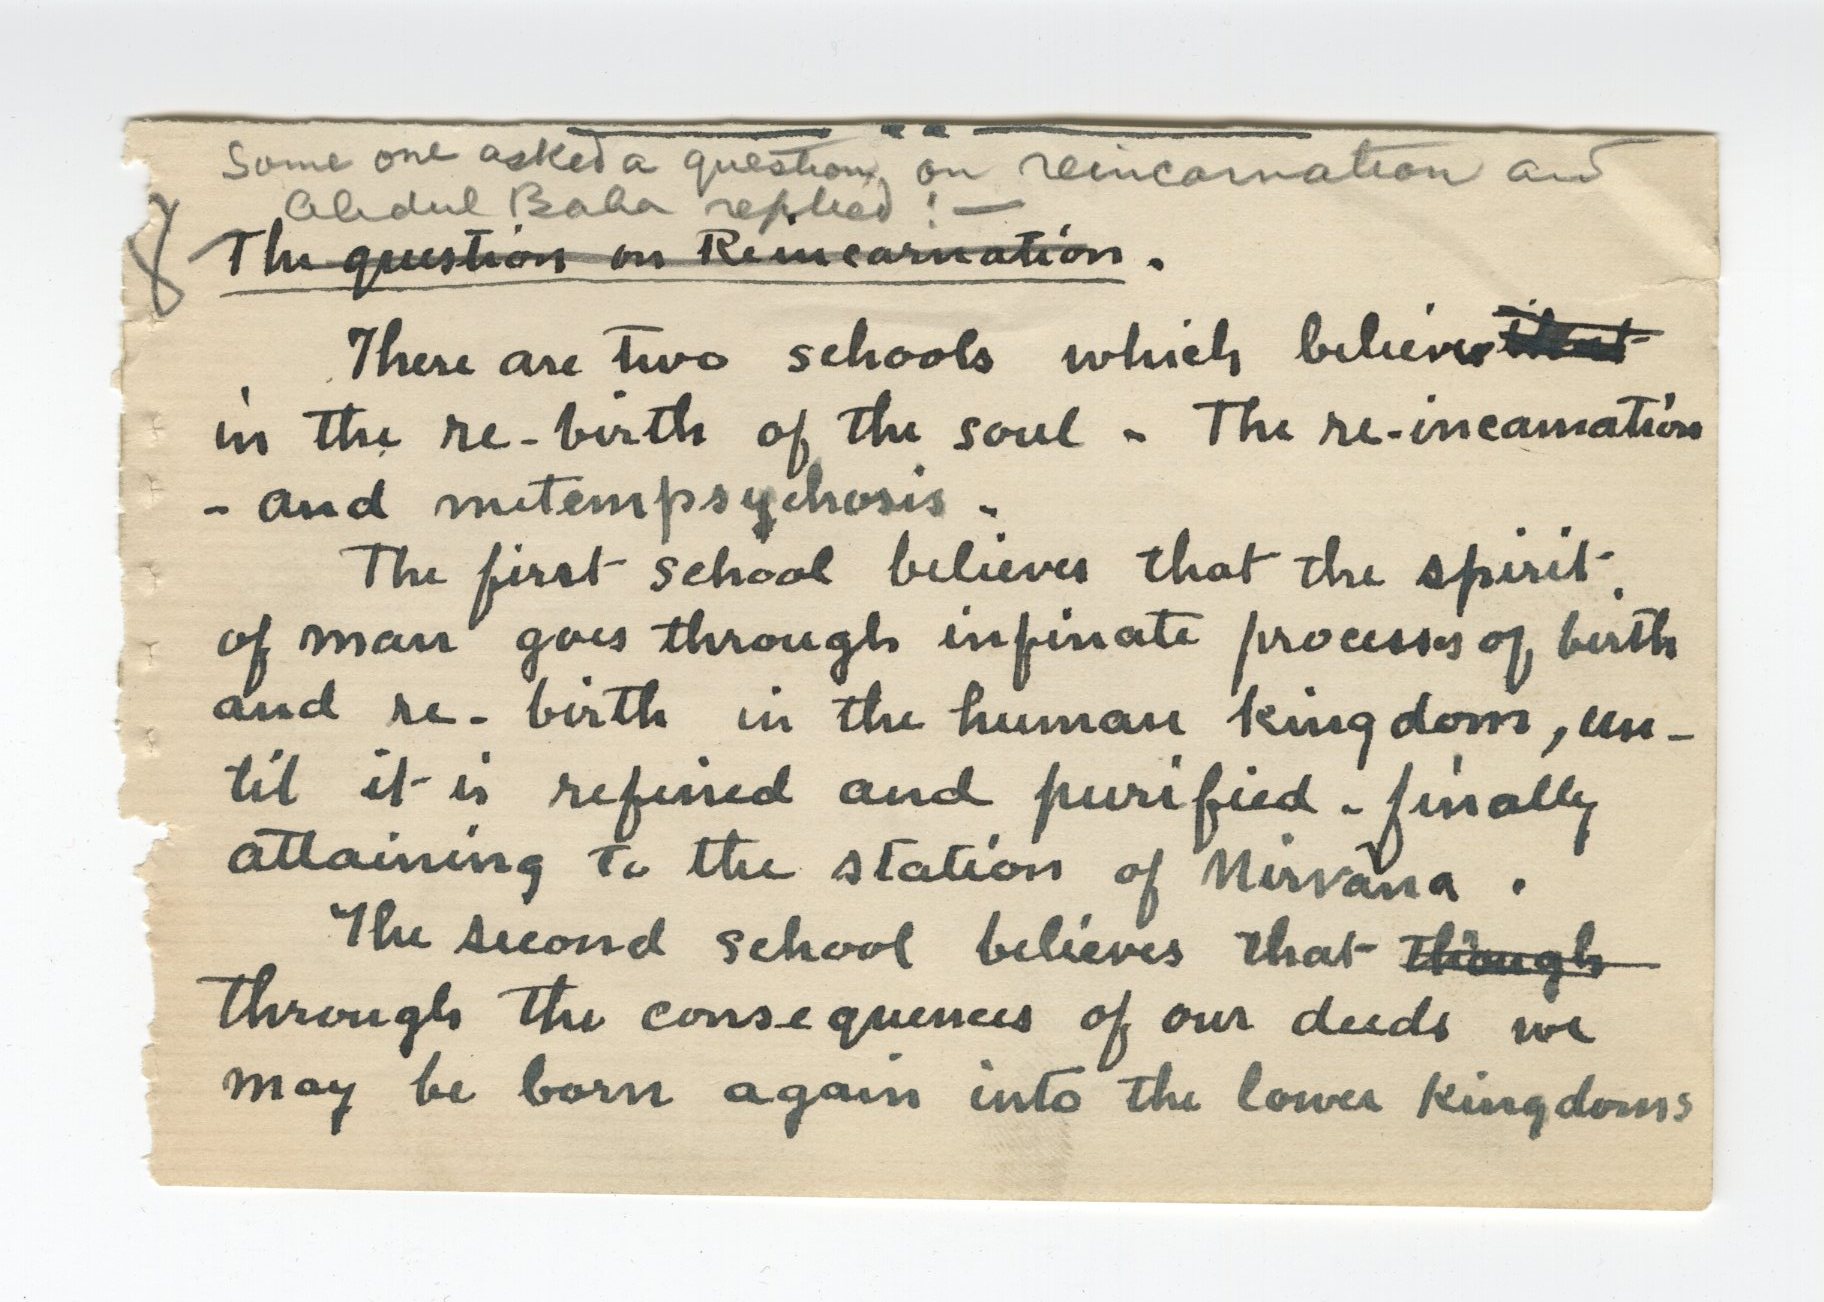 Some one asked a question on reincarnation and
Abdul Baha replied : —
The question on Reincarnation.
There are two schools which believes that
in the re-birth of the soul - The re-incarnation
- and metempsychosis -
The first school believes that the spirit
of man goes through infinate processes of birth
and re-birth in the human kingdom, un-
til it is refined and purified - finally
attaining to the station of Nirvana .
The second school believes that though
through the consequences of our deeds we
may be born again into the lower kingdoms